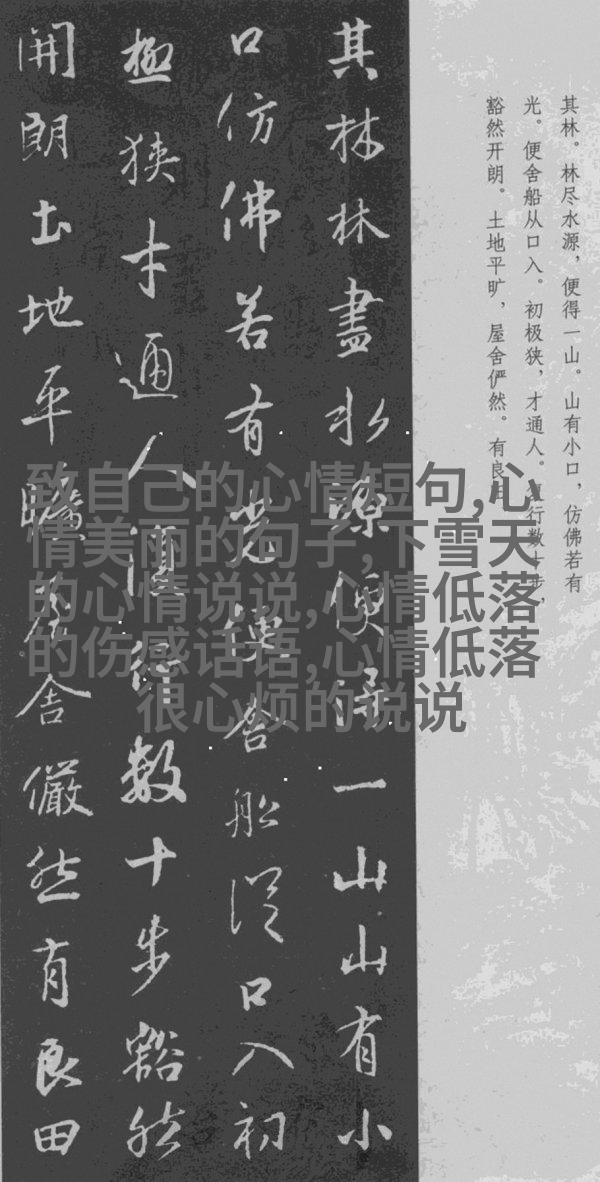 其林。林尽水源，便得一山。山有小口，仿佛若有
光。便舍船从口入。初极狭，才通人。复行数十步，
豁然开朗。土地平旷，屋舍俨然。有良田
其林林盡水源便得一山山有小
口仿佛若有光便舍船從口入初
極狭才通人復行數十步豁然
開朗土地平曠屋舍儼然有良田
致自己的心情短句,心
情美丽的句子,下雪天
的心情说说,心情低落
的伤感话语,心情低落
很心烦的说说